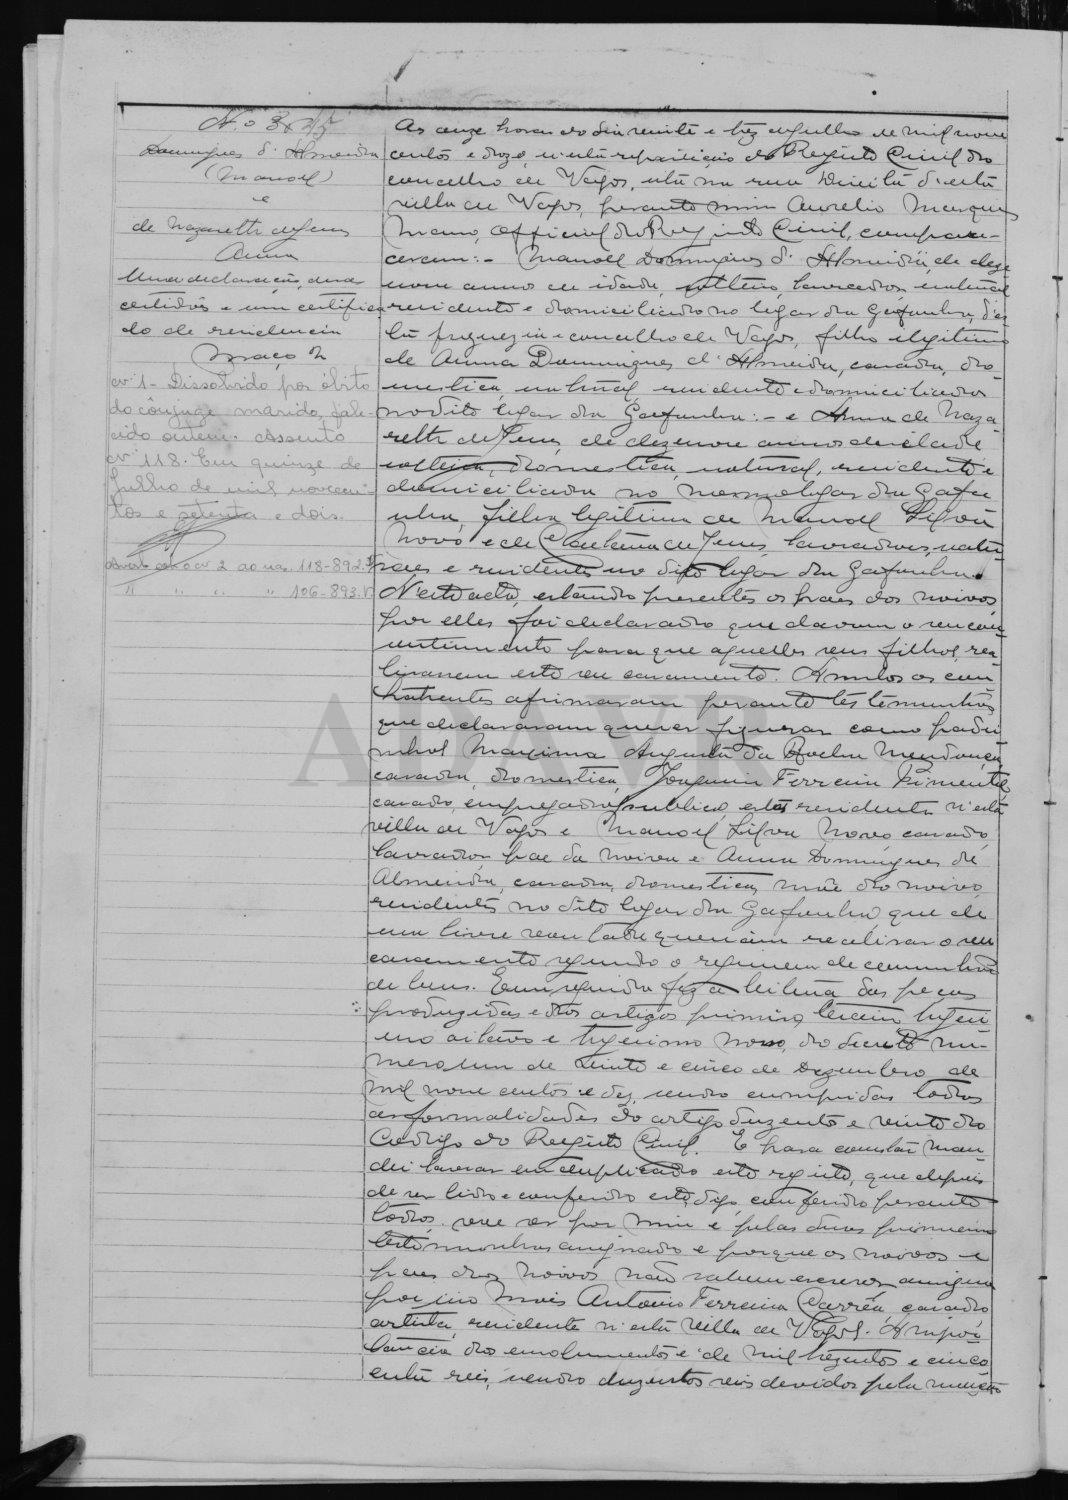 N.o 3
Domingues d'Almeida
(Manoel)
e
de Nazareth de Jesus
Anna
Uma declaração, duas
certidões e um certifica
do de residencia
Maço 2
nº 1 - Dissolvido por óbito
do cônjuge marido, fale-
cido ontem. Assento
nº 118. Em quinze de
Julho de mil novecen-
tos e setenta e dois.
nº 2 ao 118-892.
" " " " 106-893.V.
As onze horas do dia vinte e tres de julho de mil nove
centos e doze, n'esta repartição do Registo Civil do
concelho de Vagos, sita na rua Direita d'esta
villa de Vagos, perante mim Aurelio Marques
Mano, official do Registo Civil, compare-
ceram: - Manoel Domingues d'Almeida, de deze
nove annos de idade, solteiro, lavrador, natural
residente e domiciliado no logar da Gafanha, d'es
ta freguezia e concelho de Vagos, filho illegitimo
de Anna Domingues d'Almeida, casada, do-
mestica, natural, residente e domiciliada
no dito logar da Gafanha: - e Anna de Naza-
reth de Jesus, de dezenove annos de idade
solteira, domestica, natural, residente e
domiciliada no mesmo logar da Gafa
nha, filha legitima de Manoel Silva
Novo e de Caetana de Jesus, lavradores, natu
raes e residentes no dito logar da Gafanha.
N'este acto, estando presentes os paes dos noivos,
por elles foi declarado que davam o seu con
sentimento para que aquelles seus filhos, rea-
lisassem este seu casamento. Ambos os con
trahentes afirmaram perante as testemunhas
que declararam querer figurar como padri
nhos Maxima Augusta da Rocha Mendonça,
casada, domestica, Joaquim Ferreira Pimentel,
casado, empregado publico, estes residentes n'esta
villa de Vagos e Manoel Silva Novo, casado,
lavrador, pae da noiva e Anna Domingues de
Almeida, casada, domestica, mãe do noivo,
residentes no dito logar da Gafanha, que de
sua livre vontade queriam realisar o seu
casamento segundo o regimen de communhão
de bens. Em seguida fiz a leitura das peças
produzidas e dos artigos primeiro, terceiro, trigesi
mo oitavo e trigesimo nono, do decreto nu-
mero um de vinte e cinco de Dezembro de
mil nove centos e dez, sendo cumpridas todas
as formalidades do artigo duzentos e vinte do
Codigo do Registo Civil. E para constar man-
dei lavrar em duplicado este registo, que depois
de ser lido e conferido este, digo, conferido perante
todos, vae ser por mim e pelas duas primeiras
testemunhas assignado e porque os noivos e
paes dos noivos não sabem escrever, assigna
por Antonio Ferreira Corrêa, casado
artista, residente n'esta Villa de Vagos. A impor
tancia dos emolumentos é de mil trezentos e cinco
enta reis, sendo duzentos reis devidos pela menção